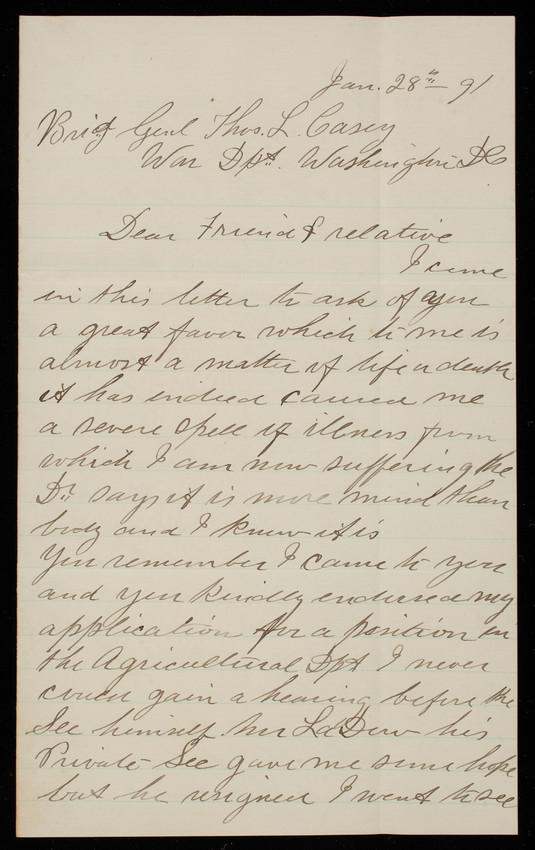 Jan. 28th 91
Brig Genl Thos. L. Casey
War Dpt. Washington DC
Dear Friend & relative
I come
in this letter to ask of you
a great favor which to me is
almost a matter of life or death
it has indeed caused me
a severe spell of illness from
which I am now suffering the
Dr. says it is more mind than
body and I know it is
You remember I came to you
and you kindly endorsed my
application for a position in
the Agricultural Dpt I never
could gain a hearing before the
Sec himself. Mr La Dow his
Private Sec gave me some hope
but he resigned I went to see